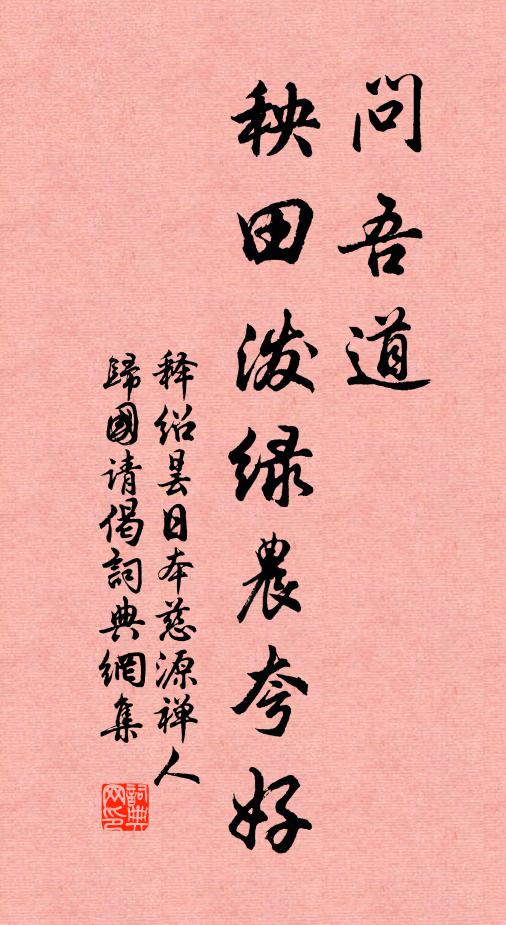 问吾道
秧田泼绿农夸好
释绍昙日本慈源禅人
归国请偈词典网集
词典网印